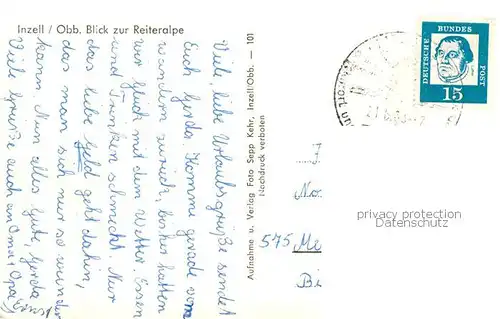 Inzell / Obb, Blick zur Reiteralpe
Viele liebe Urlaubsgrüße sendet
Euch Gerda. Komme gerade vom
wandern zurück, bisher hatten
wir Glück mit dem Wetter. Essen
und Trinken schmeckt. Nur
das liebe Geld geht dahin,
das man sich nur so wundern
kann. Nun alles Gute, Gerda
Viele Grüße auch an Oma + Opa
Ernst
Aufnahme u. Verlag Foto Sepp Kehr, Inzell/Obb. — 101
Nachdruck verboten
DEUTSCHE
BUNDES
POST
15
575 Me
privacy protection
Datenschutz